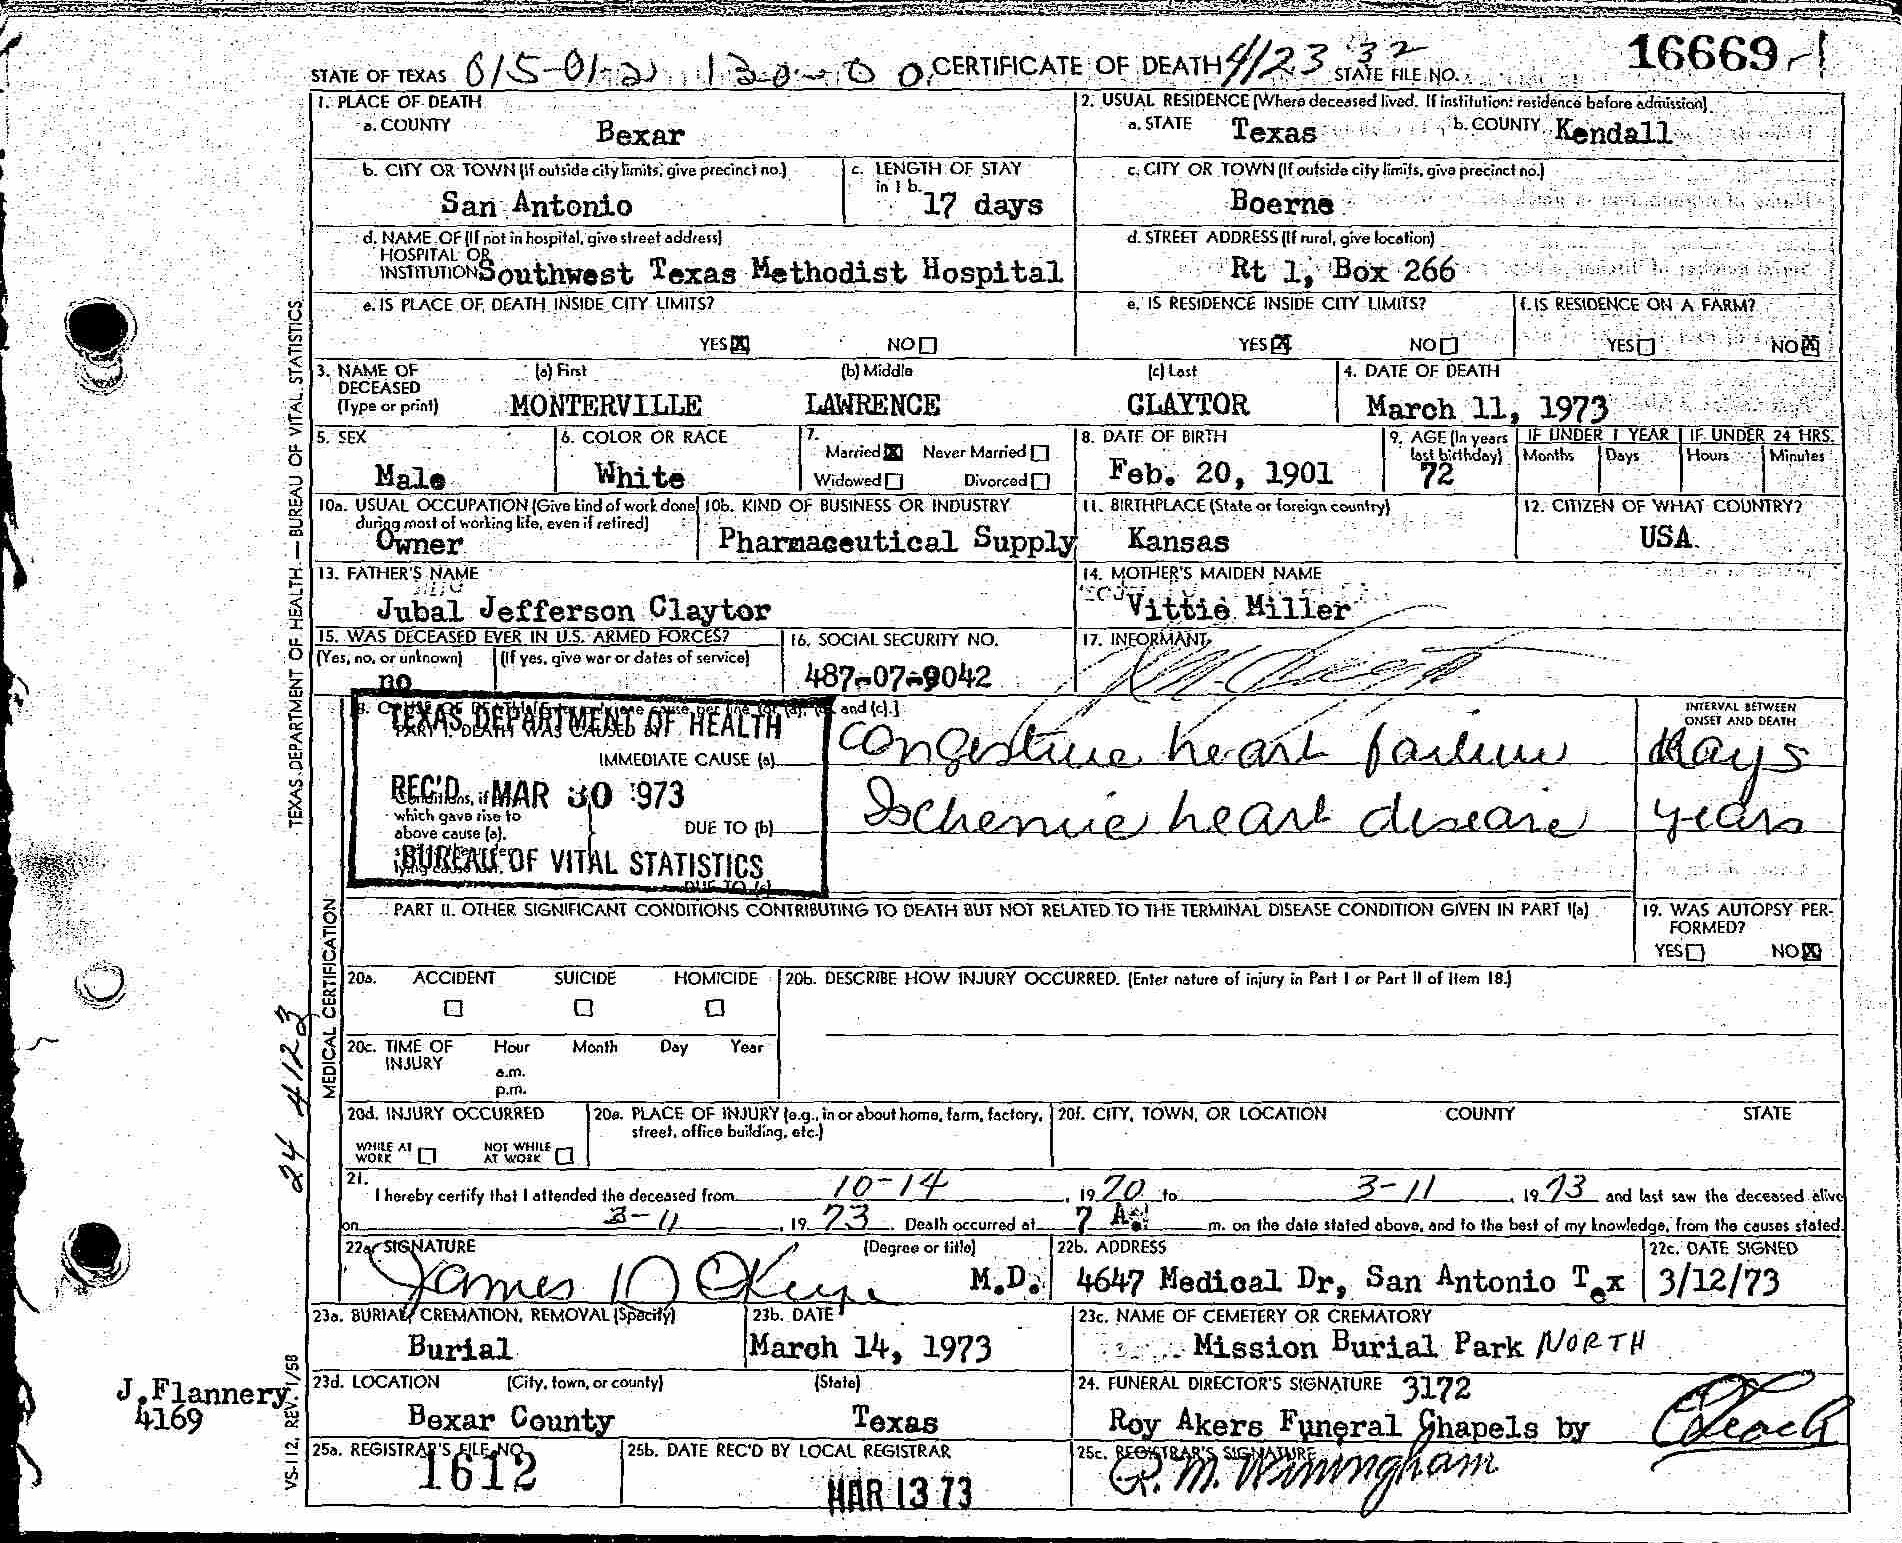 STATE OF TEXAS CERTIFICATE OF DEATH 4/23 32 STATE FILE NO. 16669-1
1. PLACE OF DEATH
a. COUNTY Bexar
2. USUAL RESIDENCE (Where deceased lived. If institution: residence before admission)
a. STATE Texas b. COUNTY Kendall
b. CITY OR TOWN (If outside city limits, give precinct no.) San Antonio
c. LENGTH OF STAY in 1 b. 17 days
c. CITY OR TOWN (If outside city limits, give precinct no.) Boerne
d. NAME OF (If not in hospital, give street address)
HOSPITAL OR
INSTITUTION Southwest Texas Methodist Hospital
d. STREET ADDRESS (If rural, give location)
Rt 1, Box 266
e. IS PLACE OF DEATH INSIDE CITY LIMITS?
YES X NO
e. IS RESIDENCE INSIDE CITY LIMITS?
YES X NO
f. IS RESIDENCE ON A FARM?
YES NO X
3. NAME OF DECEASED (Type or print)
(a) First (b) Middle (c) Last
MONTERVILLE LAWRENCE CLAYTOR
4. DATE OF DEATH
March 11, 1973
5. SEX
Male
6. COLOR OR RACE
White
7. Married X Never Married
Widowed Divorced
8. DATE OF BIRTH
Feb. 20, 1901
9. AGE (In years last birthday) 72
IF UNDER 1 YEAR Months Days
IF UNDER 24 HRS. Hours Minutes
10a. USUAL OCCUPATION (Give kind of work done during most of working life, even if retired)
Owner
10b. KIND OF BUSINESS OR INDUSTRY
Pharmaceutical Supply
11. BIRTHPLACE (State or foreign country)
Kansas
12. CITIZEN OF WHAT COUNTRY?
USA
13. FATHER'S NAME
Jubal Jefferson Claytor
14. MOTHER'S MAIDEN NAME
Vittie Miller
15. WAS DECEASED EVER IN U.S. ARMED FORCES?
(Yes, no, or unknown) (If yes, give war or dates of service)
no
16. SOCIAL SECURITY NO.
487-07-9042
17. INFORMANT
and (c).]
TEXAS DEPARTMENT OF HEALTH
PART I. DEATH WAS CAUSED BY
IMMEDIATE CAUSE (a) Congestive heart failure
INTERVAL BETWEEN ONSET AND DEATH
days
REC'D MAR 30 1973
Conditions, if
which gave rise to
above cause (a),
DUE TO (b) Ischemic heart disease years
BUREAU OF VITAL STATISTICS
DUE TO (c)
PART II. OTHER SIGNIFICANT CONDITIONS CONTRIBUTING TO DEATH BUT NOT RELATED TO THE TERMINAL DISEASE CONDITION GIVEN IN PART I(a)
19. WAS AUTOPSY PERFORMED?
YES NO X
20a. ACCIDENT SUICIDE HOMICIDE
20b. DESCRIBE HOW INJURY OCCURRED. (Enter nature of injury in Part I or Part II of Item 18.)
20c. TIME OF INJURY Hour Month Day Year
a.m.
p.m.
20d. INJURY OCCURRED
WHILE AT WORK NOT WHILE AT WORK
20e. PLACE OF INJURY (e.g., in or about home, farm, factory, street, office building, etc.)
20f. CITY, TOWN, OR LOCATION COUNTY STATE
21. I hereby certify that I attended the deceased from 10-14, 1970 to 3-11, 1973 and last saw the deceased alive
on 3-11, 1973. Death occurred at 7 A. m. on the date stated above, and to the best of my knowledge, from the causes stated.
22a. SIGNATURE (Degree or title) M.D.
22b. ADDRESS
4647 Medical Dr, San Antonio Tex
22c. DATE SIGNED
3/12/73
23a. BURIAL, CREMATION, REMOVAL (Specify)
Burial
23b. DATE
March 14, 1973
23c. NAME OF CEMETERY OR CREMATORY
Mission Burial Park NORTH
23d. LOCATION (City, town, or county) (State)
Bexar County Texas
24. FUNERAL DIRECTOR'S SIGNATURE 3172
Roy Akers Funeral Chapels by
25a. REGISTRAR'S FILE NO.
1612
25b. DATE REC'D BY LOCAL REGISTRAR
MAR 13 73
25c. REGISTRAR'S SIGNATURE
TEXAS DEPARTMENT OF HEALTH — BUREAU OF VITAL STATISTICS
MEDICAL CERTIFICATION
24 4123
VS-112, REV. 1/58
J.Flannery
4169